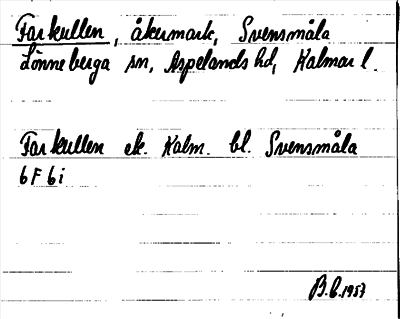 Farkullen, åkermark, Svensmåla
Lönneberga sn, Aspelands hd, Kalmar l.
Farkullen ek. Kalm. bl. Svensmåla
6F 6i
B.C. 1957